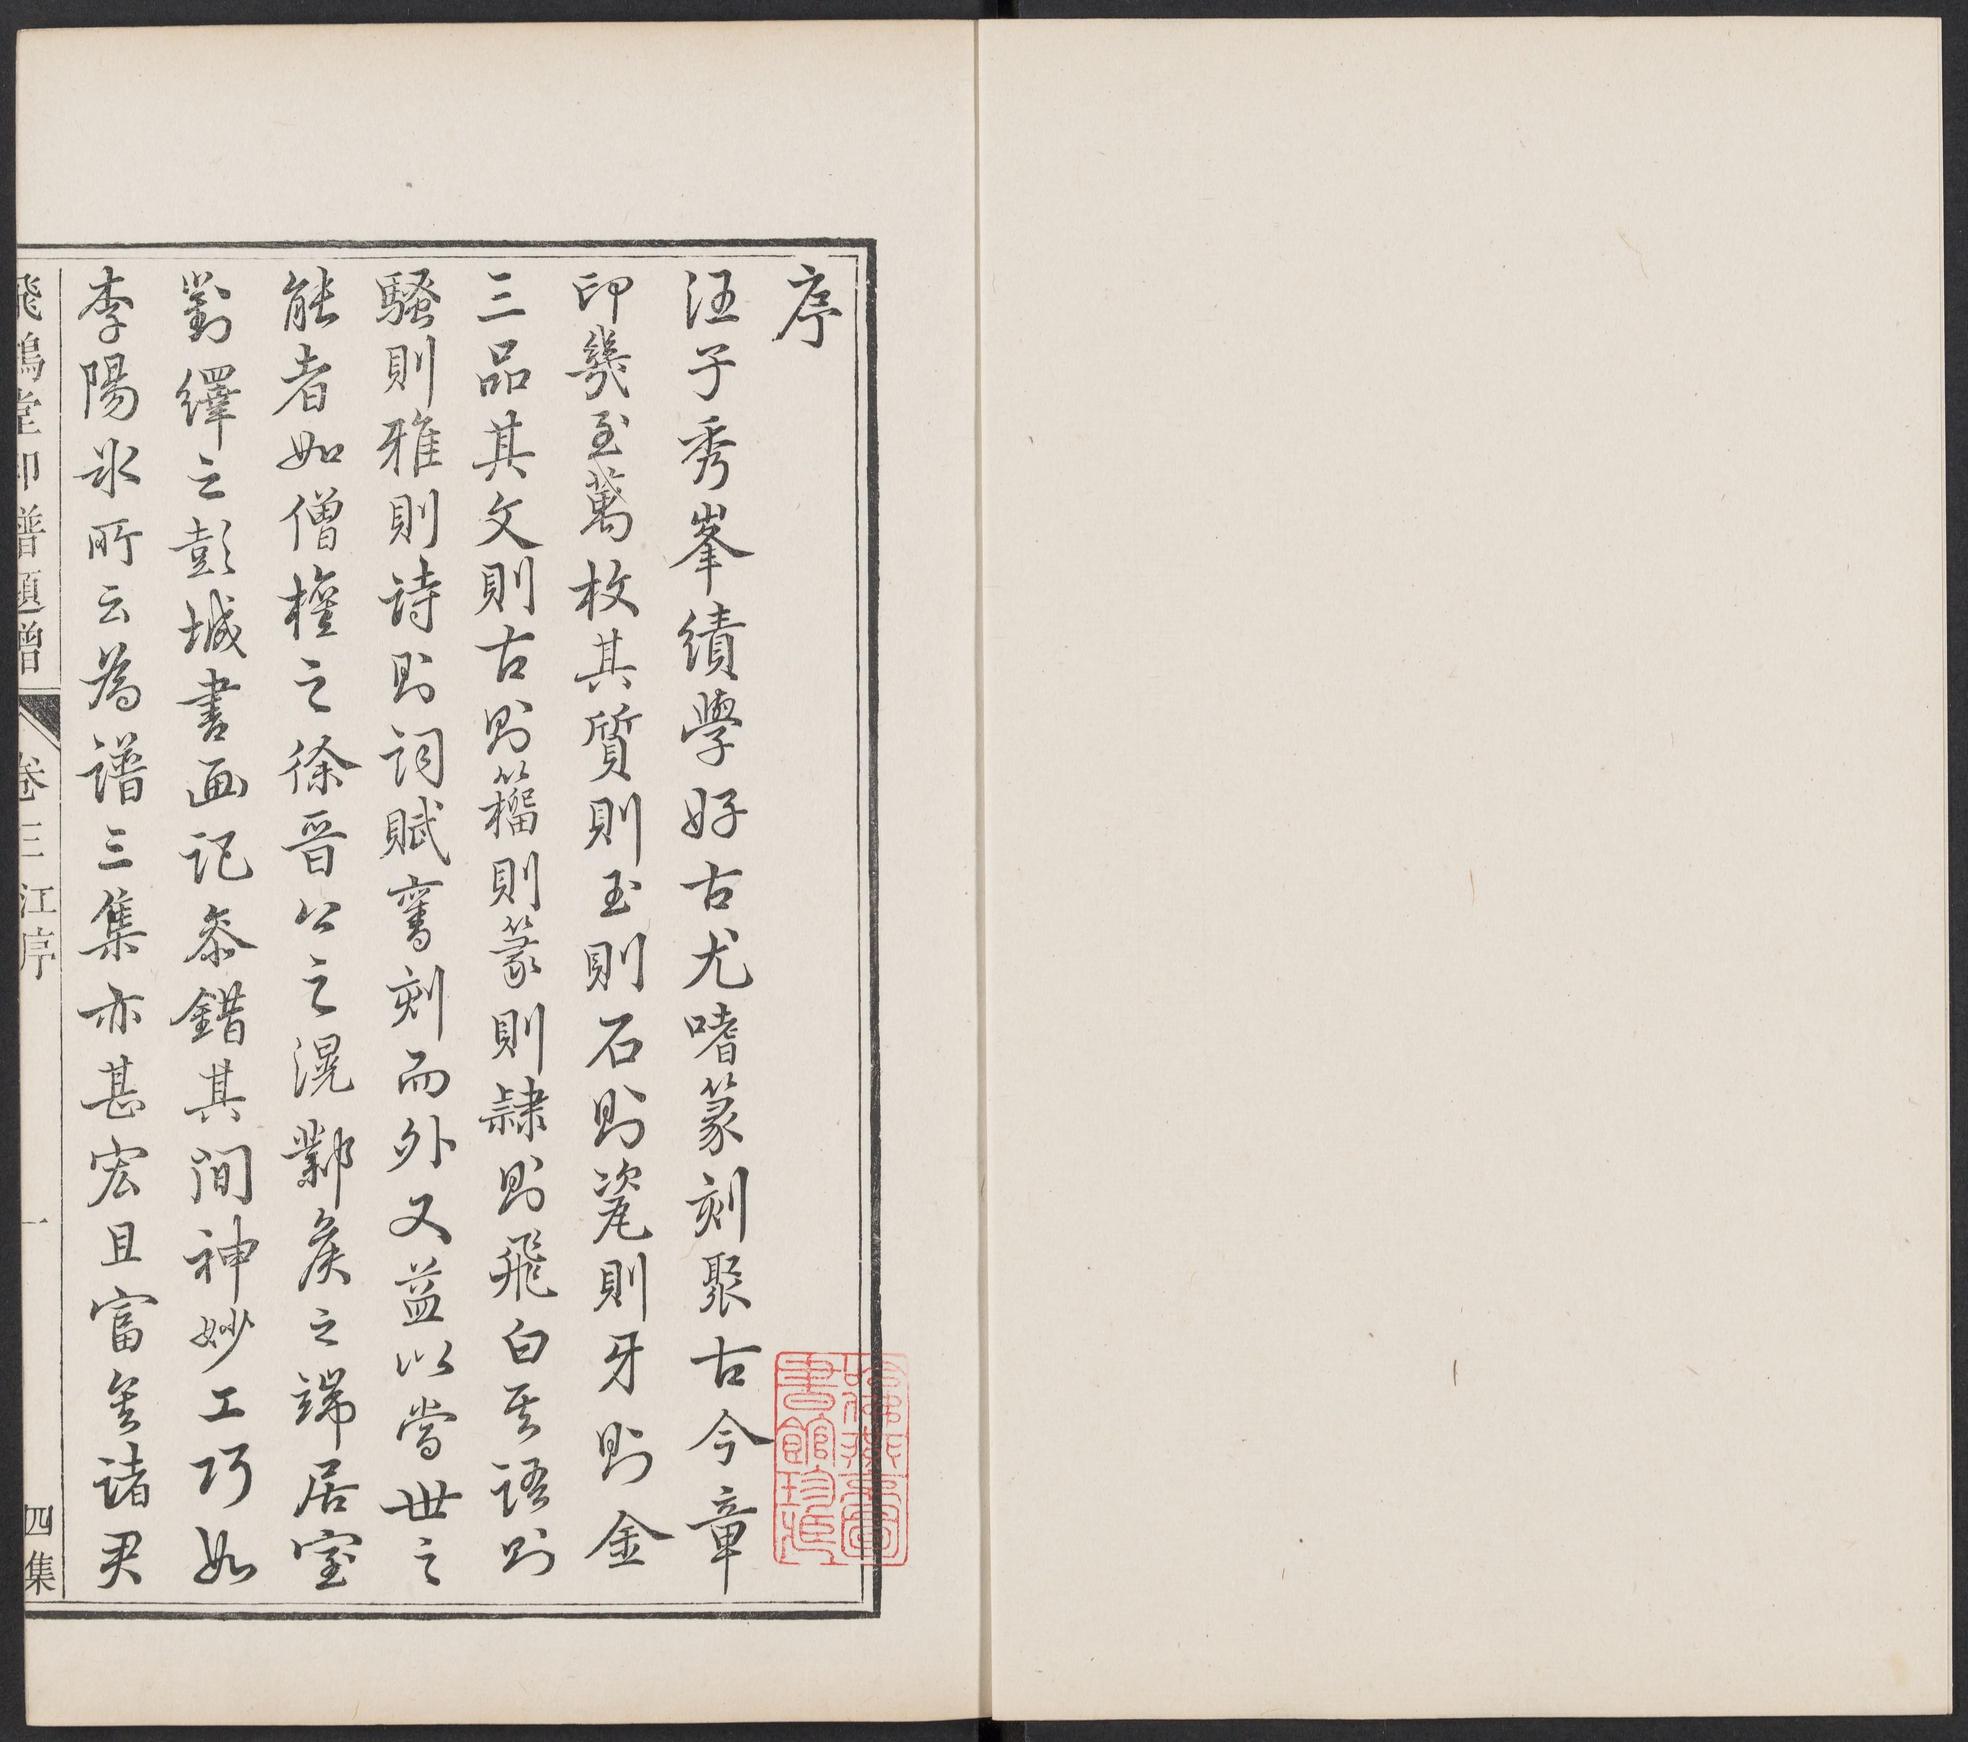 序
汪子秀峯績學好古尤嗜篆刻聚古今章
印幾至萬枚其質則玉則石則瓷則牙則金
三品其文則古則籀則篆則隸則飛白其語則
騷則雅則詩則詞賦舊刻而外又益以當世之
能者如僧權之徐晉公之滉酇矦之端居室
對繹之彭城書画記叅錯其間神妙工巧如
李陽冰所云為譜三集亦甚宏且富矣諸君
飛鴻堂印譜題贈 卷三 江序 一 四集
書館珍藏